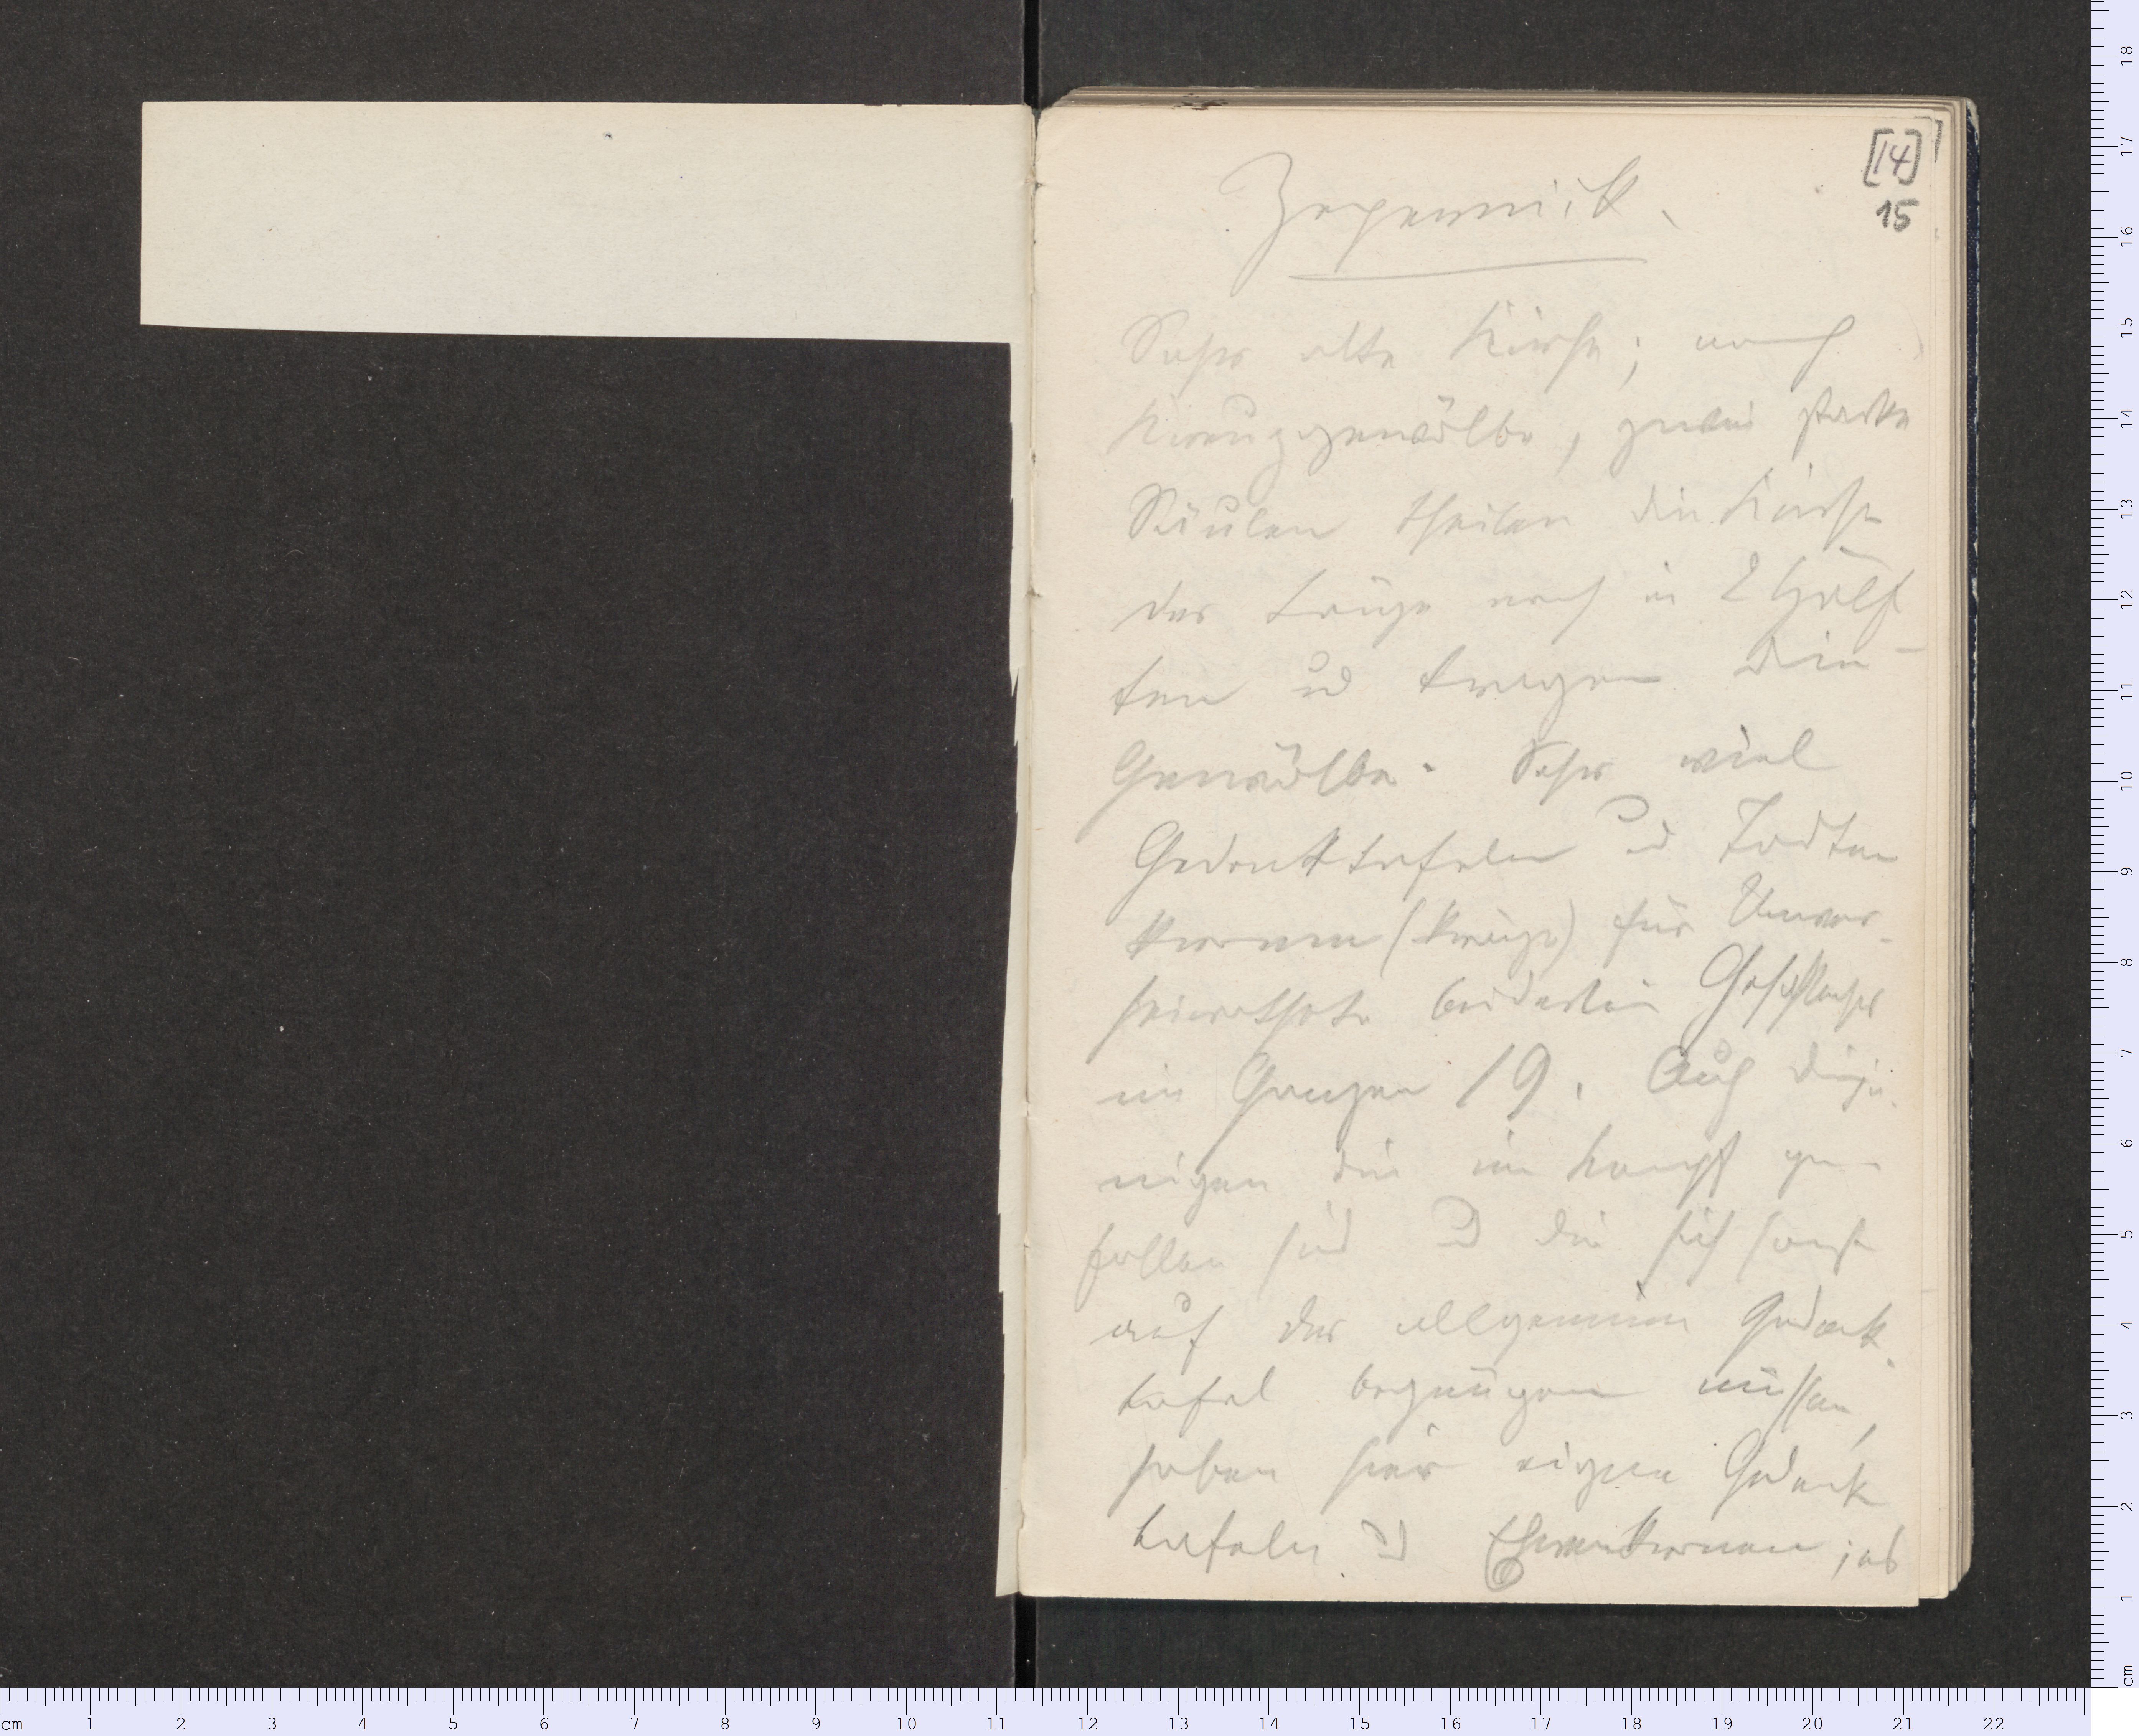 [14]
15
Zepernick.
Sehr alte Kirche; noch
Kreuzgewölbe, zwei starke
Säulen theilen die Kirche
der Länge nach in 2 Hälf
ten und tragen die
Gewölbe. Sehr viel
Gedenktafeln und Todten
kronen (Kränze) für Unver-
heirathete beiderlei Geschlechts
im Ganzen 19. Auch dieje-
nigen die im Kampf ge-
fallen sind und die sich sonst
auf der allgemeinen Gedenk-
tafel begnügen müssen,
haben hier eigene Gedenk
tafeln und Ehrenkronen; es